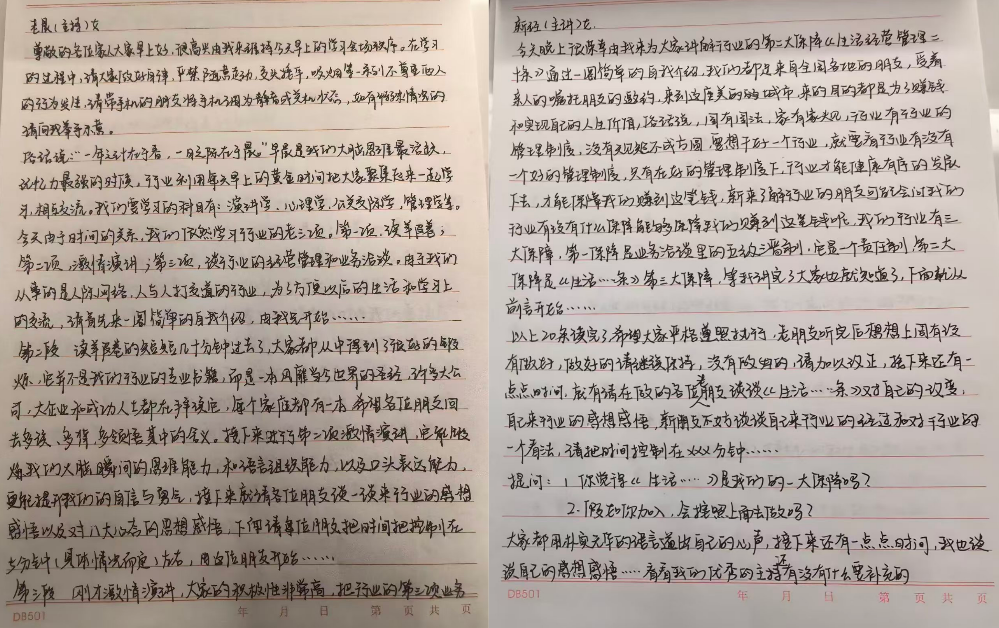 老晨(主持)女
尊敬的各位家人大家早上好,很高兴由我来维持今天早上的学习会场秩序。在学习
的过程中,请大家做好自律,严禁随意走动,交头接耳,吸烟等一系列不尊重他人
的行为发生,请带手机的朋友将手机调为静音或关机状态,如有特殊情况的
请向我举手示意。
俗话说:“一年之计在于春,一日之际在于晨。”早晨是我们大脑思维最活跃,
记忆力最强的时候,行业利用每天早上的黄金时间把大家聚集起来一起学
习,相互交流。我们要学习的科目有:演讲学、心理学、公关交际学、管理学等。
今天由于时间的关系,我们依然学习行业的老三项。第一项,读羊皮卷;
第二项,激情演讲;第三项,谈行业的经营管理和业务洽谈。由于我们
从事的是人际网络,人与人打交道的行业,为了方便以后的生活和学习上
的交流,请首先来一圈简单的自我介绍,由我先开始……
第二段 读羊皮卷的短短几十分钟过去了,大家都从中得到了很好的锻
炼,它并不是我们行业的专业书籍,而是一本风靡当今世界的圣经,许多大公
司,大企业和成功人士都在拜读它,每个家庭都有一本,希望各位朋友回
去多读、多背、多领悟其中的含义。接下来进行第二项激情演讲,它能锻
炼我们大脑瞬间的思维能力,和语言组织能力,以及口头表达能力,
更能提升我们的自信与勇气,接下来就请各位朋友谈一谈来行业的感想
感悟以及对八大心态的思想感悟,下便请每位朋友把时间把控制在
分钟(具体情况而定)左右,由这位朋友开始……
第三段 刚才激情演讲,大家的积极性非常高,把行业的第三项业务
D8501 年 月 日 第 页 共 页
新经(主讲)女
今天晚上很荣幸由我来为大家讲解行业的第二大保障《生活经营管理二
十条》通过一圈简单的自我介绍,我们都是来自全国各地的朋友,受着
亲人的嘱托朋友的邀约,来到这座美丽的城市,来的目的都是为了赚钱
和实现自己的人生价值,俗话说,国有国法,家有家规,行业有行业的
管理制度,没有规矩不成方圆,要想干好一个行业,就要看行业有没有
一个好的管理制度,只有在好的管理制度下,行业才能健康有序的发展
下去,才能保障我们赚到这笔钱,新来了解行业的朋友可能会问我们
行业有没有什么保障能够保障我们赚到这笔钱呢,我们行业有三
大保障,第一保障是业务洽谈里的五级三晋制,它是一个责任制,第二大
保障是《生活…条》第三大保障,等我讲完了大家也就知道了,下面就从
前言开始……
以上20条读完了希望大家严格遵照执行,老朋友听完后想想上面有没
有做好,做好的请继续保持,没有做好的,请加以改正,接下来还有一
点点时间,就有请在做的各位老朋友谈谈《生活……条》对自己的改变,
自己来行业的感想感悟,新朋友不妨谈谈自己来行业的经过和对行业的
一个看法,请把时间控制在xxx分钟……
提问:1 你觉得《生活……》是我们的一大保障吗?
2. 假如你加入,会按照上面去做吗?
大家都用朴实无华的语言道出自己的心声,接下来还有一点点时间,我也说
说自己的感想感悟……看看我们优秀的主持还有没有什么要补充的
D8501 年 月 日 第 页 共 页